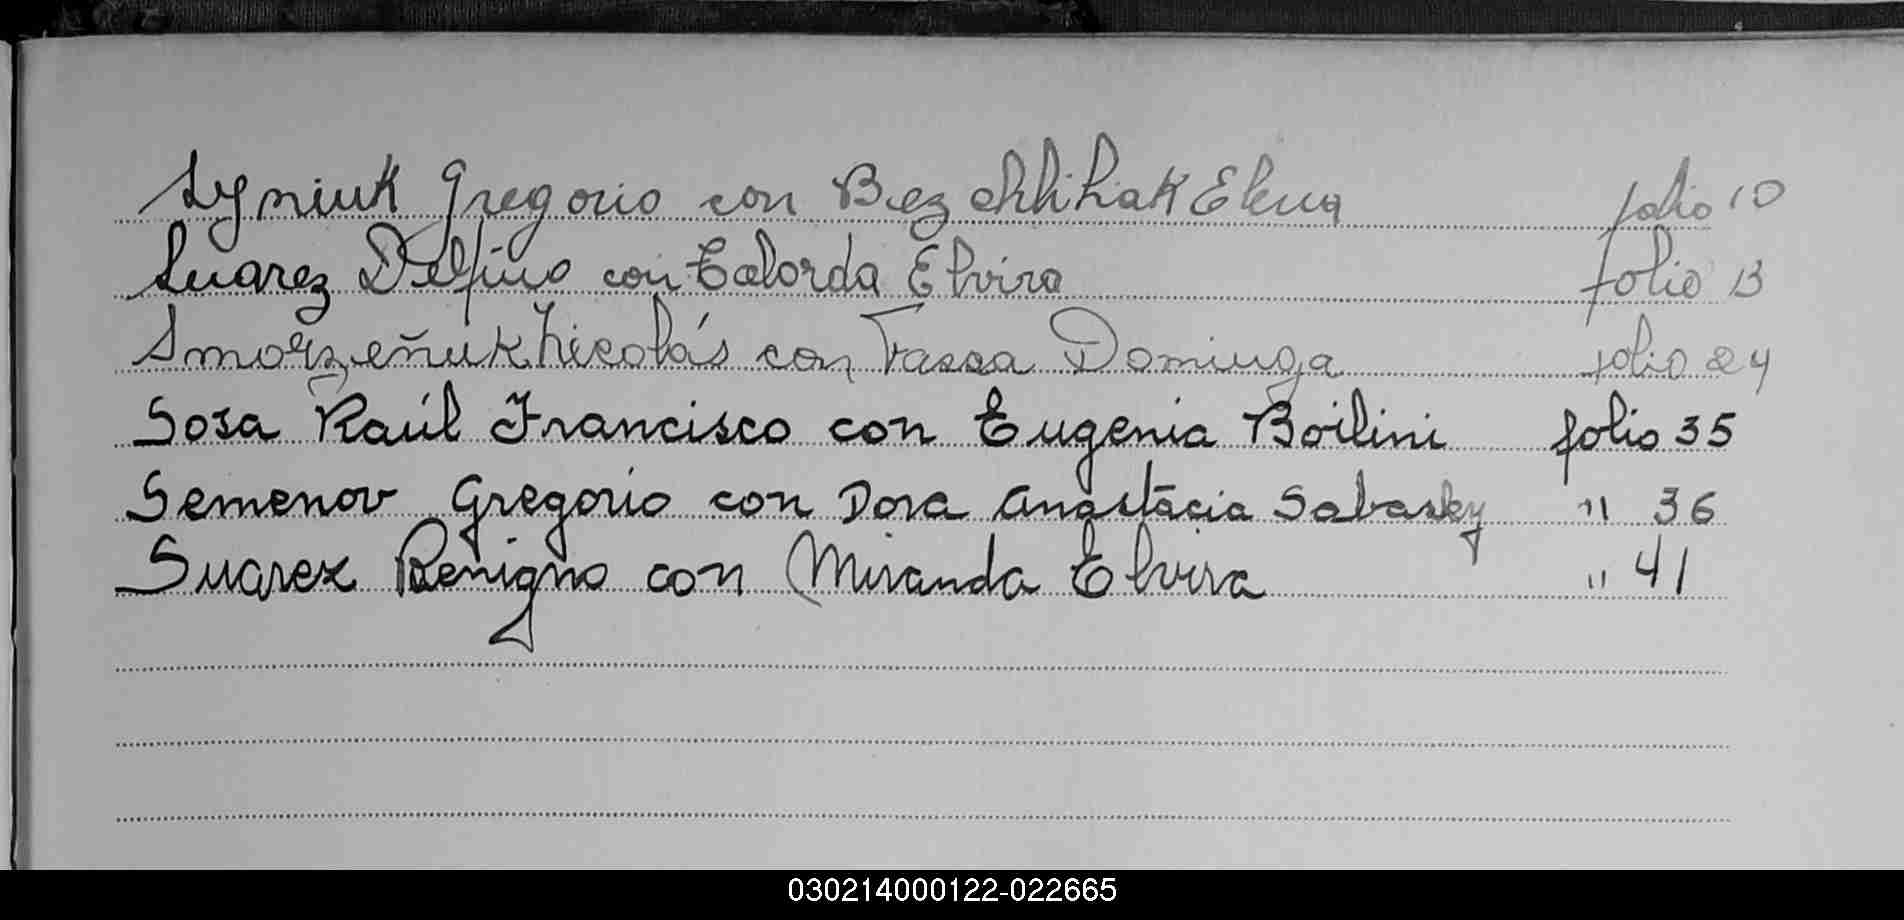 Syniuk Gregorio con Bezchhihak Elena folio 10
Suarez Delfino con Calorda Elvira folio 13
Smorzeñuk Nicolás con Vassa Dominga folio 24
Sosa Raúl Francisco con Eugenia Boilini folio 35
Semenov Gregorio con Dora Anastacia Sabasky " 36
Suarez Benigno con Miranda Elvira " 41
030214000122-022665